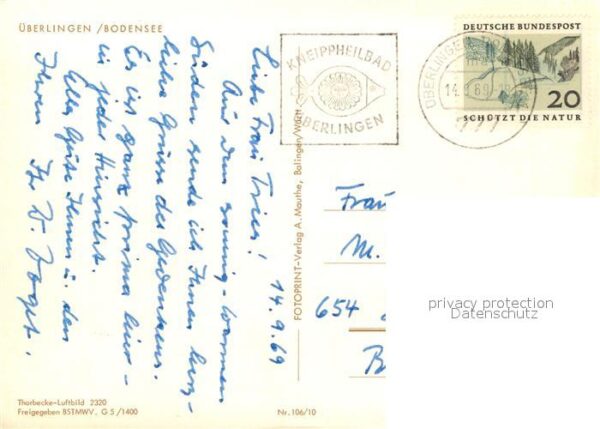 ÜBERLINGEN /BODENSEE
KNEIPPHEILBAD
ÜBERLINGEN
ÜBERLINGEN
DEUTSCHE BUNDESPOST
20
SCHÜTZT DIE NATUR
14.9.69
Liebe Frau Trier!
Aus dem sonnig-warmen
Süden sende ich Ihnen herz-
liche Grüsse des Gedenkens.
Es ist ganz prima hier-
in jeder Hinsicht.
Alles Gute Ihnen u. den
Ihren
Ihr W. Vogt.
FOTOPRINT-Verlag A. Mauthe, Balingen/Württ
Frau
M.
654
B
privacy protection
Datenschutz
Thorbecke-Luftbild 2320
Freigegeben BSTMWV. G 5/1400
Nr. 106/10